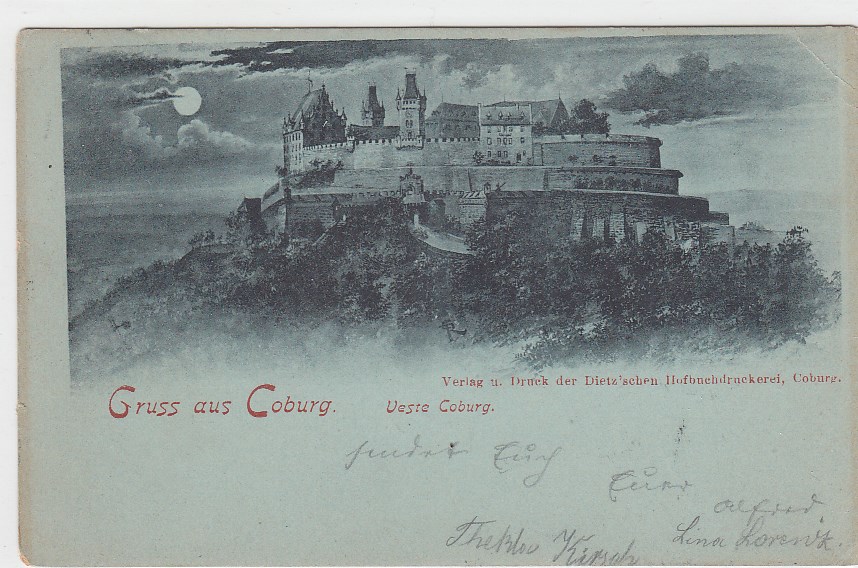 Verlag u. Druck der Dietz'schen Hofbuchdruckerei, Coburg.
Gruss aus Coburg. Veste Coburg.
sendet Euch
Euer
Alfred
Thekla Kirsch
Lina Lorentz.